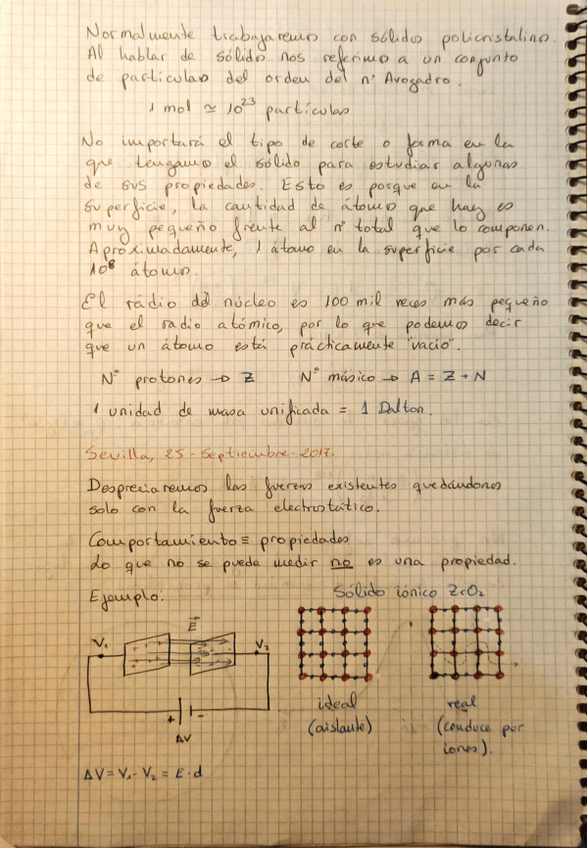 Normalmente trabajaremos con sólidos policristalinos.
Al hablar de sólidos nos referimos a un conjunto
de partículas del orden del nº Avogadro.
1 mol ≃ 10²³ partículas
No importará el tipo de corte o forma en la
que tengamos el sólido para estudiar algunas
de sus propiedades. Esto es porque en la
superficie, la cantidad de átomos que hay es
muy pequeño frente al nº total que lo componen.
Aproximadamente, 1 átomo en la superficie por cada
10⁸ átomos.
El radio del núcleo es 100 mil veces más pequeño
que el radio atómico, por lo que podemos decir
que un átomo está prácticamente "vacío".
Nº protones → Z Nº másico → A = Z + N
1 unidad de masa unificada = 1 Dalton.
Sevilla, 25 - Septiembre - 2017.
Despreciaremos las fuerzas existentes quedándonos
solo con la fuerza electrostático.
Comportamiento ≡ propiedades
Lo que no se puede medir no es una propiedad.
Ejemplo:
Sólido iónico ZrO₂
E
V₁
V₂
+ -
ΔV
ideal
(aislante)
real
(conduce por
iones).
ΔV = V₁ - V₂ = E · d